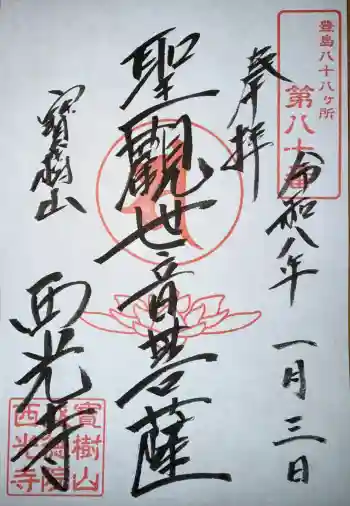 豊島八十八ヶ所
第八十番
奉拝
令和八年
一月三日
聖觀世音菩薩
寳樹山
西光寺
寳樹山
西光寺